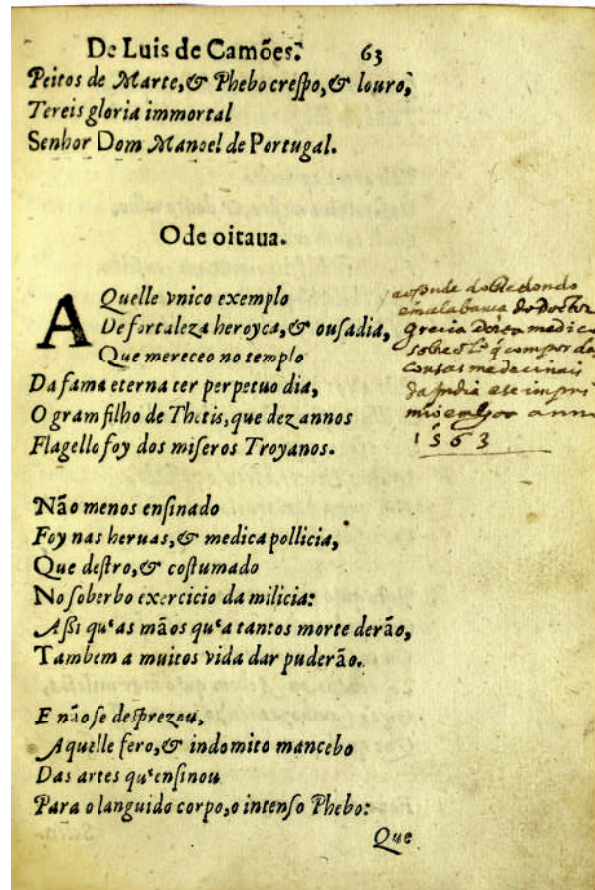 De Luis de Camões. 63
Peitos de Marte, & Phebo crespo, & louro,
Tereis gloria immortal
Senhor Dom Manoel de Portugal.
Ode oitaua.
AQuelle vnico exemplo
De fortaleza heroyca, & ousadia,
Que mereceo no templo
Da fama eterna ter perpetuo dia,
O gram filho de Thetis, que dez annos
Flagello foy dos miseros Troyanos.
ao Conde do Redondo
em alabança do Doctor
grecia Dorta medico
sobre o Lº q compor das
cousas medecinais
da India e se impri
mio em goa anno
1563
Não menos ensinado
Foy nas heruas, & medica pollicia,
Que destro, & costumado
No soberbo exercicio da milicia:
Assi qu'as mãos qu'a tantos morte derão,
Tambem a muitos vida dar puderão.
E não se desprezou,
Aquelle fero, & indomito mancebo
Das artes qu'ensinou
Para o languido corpo, o intenso Phebo:
Que